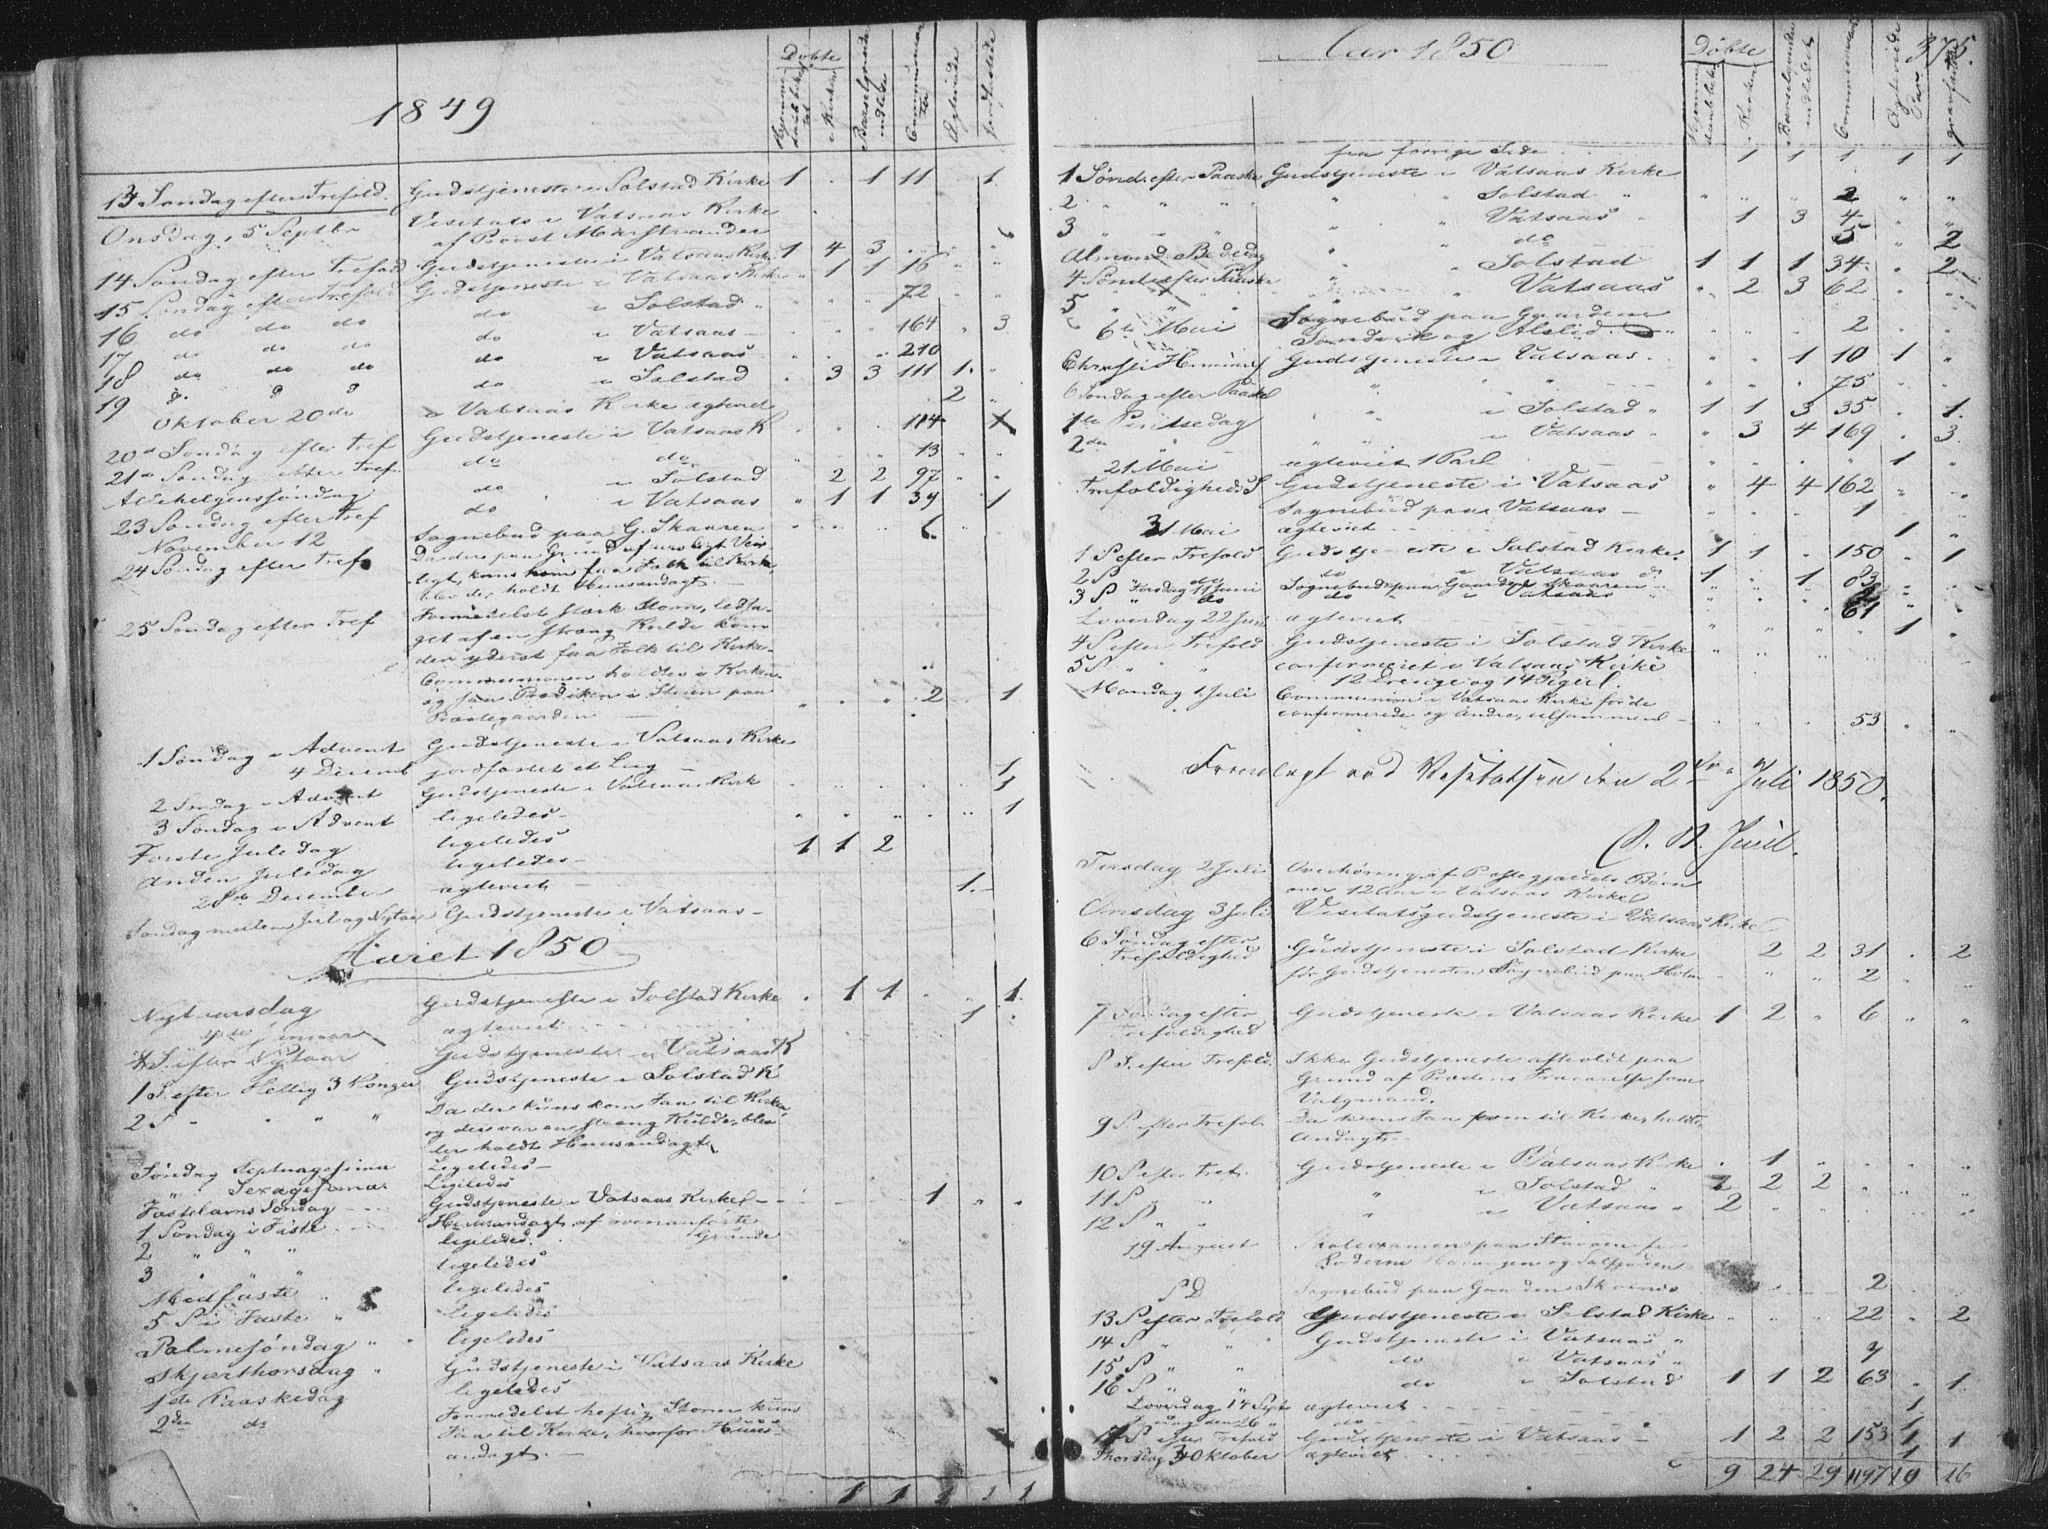 1849
Döbte
i Kirken
13 Søndag efter Trefold. Gudstjeneste i Solstad Kirke 1 . 1 11 1
Onsdag, 5 Septbr Visitats i Vatsaas Kirke
af Provst
14 Søndag efter Trefold Gudstjeneste i Vatsaas Kirke 1 4 3
15 Søndag efter Trefold Gudstjeneste i Vatsaas Kirke " 1 1 16
16 do do do do i Solstad 72
17 do do do do i Vatsaas 164 3
18 do do do do i Vatsaas 210
19 do i Solstad 3 3 111 1.
Oktober 20de i Vatsaas Kirke ægteviet 2
20de Søndag efter Tref Gudstjeneste i Vatsaas K 114
21de Søndag efter Tref. do do 13
Allehelgenssøndag do i Solstad 2 2 97
23 Søndag efter Tref do i Vatsaas " 1 1 39 1
November 12 Sognebud paa G. Skaaren
24 Søndag efter Tref Da der paa Grund af uroligt Veir
kuns kom faa Folk til Kirke,
blev der holdt Huusandagt.
25 Søndag efter Tref Formedelst stærk Storm, ledsa-
get af en stræng Kulde kom
den yderst faa Folk til Kirke.
Communionen holdtes i Kirken
og Prædiken i Stuen paa 2 1
Præstegaarden
1 Søndag i Advent Gudstjeneste i Vatsaas Kirke
4 Decemb jordfæstet et Liig 1
2 Søndag i Advent Gudstjeneste i Vatsaas Kirk 3
3 Søndag i Advent ligeledes 1
Første Juledag ligeledes 1 1 2
Anden Juledag ligeledes
28de December ægteviet 1.
Søndag mellem Jul og Nytaar Gudstjeneste i Vatsaas
Aaret 1850
Nytaarsdag Gudstjeneste i Solstad Kirke . 1 1 . 1
4de Januar ægteviet 1
S. efter Nytaar Gudstjeneste i Vatsaas K
1 S. efter Hellig 3 Konger Gudstjeneste i Solstad K
2 S " " " Da der kuns kom Faa til Kirke,
og der var en stræng Kulde, blev
der holdt Huusandagt
Søndag Septuagesima Ligeledes
" Sexagesima Ligeledes
Fastelavns Søndag Gudstjeneste i Vatsaas Kirke 1
1 Søndag i Faste Huusandagt af ovenanførte
Grunde
2 " " " ligeledes.
3 ligeledes
Midfaste ligeledes
5 S i Faste ligeledes
Palmesøndag ligeledes
Skjærthorsdag Gudstjeneste i Vatsaas Kirke
1ste Paaskedag ligeledes
2den do Formedelst heftig Storm kuns
Faa til Kirke, hvorfor Huus-
andagt.
1 1 1 1 1
Aar 1850
375.
Döbte
fra forrige Side 1 1 1 1 1
1 Sønd. efter Paaske Gudstjeneste i Vatsaas Kirke
2 " " " " Solstad " 2
3 " " " " Vatsaas 1 3 4
Almind. Bededag " do 5 2
4 Sønd. efter Paaske " Solstad 1 1 1 34 2
5 " " " " Vatsaas " 2 3 62
6te Mai Sognebud paa Gaardene
Sandvik og Alslid. 2
Christi Himmelf Gudstjeneste i Vatsaas. " " 1 10 1
6 Søndag efter Paaske " " 75
1ste Pintsedag " i Solstad " 1 1 3 35 1.
2den " " i Vatsaas " 3 4 169 3
21 Mai ægteviet 1 Par 1
Trefoldigheds S Gudstjeneste i Vatsaas " 4 4 162
Sognebud paa Vatsaas 1
31 Mai ægteviet 1
1 S efter Trefold Gudstjeneste i Solstad Kirke. 1 1 " 150 1
2 S do do i Vatsaas do 1 " 1 83
Torsdag Juni Sognebud paa Gaarden Skaaren
3 S " do do i Vatsaas 61
Løverdag 22 Juni ægteviet 1
4 S efter Trefold Gudstjeneste i Solstad Kirke
5 S " " confirmeret i Vatsaas Kirke
12 Drenge og 14 Piger.
Mandag 1 Juli Communion i Vatsaas Kirke for de
confirmerede og Andre, tilsammen 53
Fremlagt ved Visitatsen den 2den Juli 1850.
Tirsdag 2 Juli Overhøring af Præstegjældets Børn
over 12 Aar i Vatsaas Kirke
Onsdag 3 Juli Visitatsgudstjeneste i Vatsaas Kirke
6 Søndag efter
Trefoldighed Gudstjeneste i Solstad Kirke 2 2 31 . 2
før Gudstjenesten Sognebud paa Holm " " 2
7 Søndag efter
Trefoldighed Gudstjeneste i Vatsaas Kirke 1 2 " 6 " "
8 S. efter Trefold. Ikke Gudstjeneste afholdt paa
Grund af Præstens Fraværelse som
Valgmand.
9 S efter Trefol. Da kuns Faa kom til Kirke, holdtes
Andagt
10 S efter Tref. Gudstjeneste i Vatsaas Kirke . 1
11 S " " " i Solstad " 2 2 2
12 S " " " i Vatsaas " 2
19 August Skoleexamen paa
S D Sognebud paa Gaarden 2
13 S efter Trefold Gudstjeneste i Solstad Kirke " " " 22 . 2
14 S " " Gudstjeneste i Vatsaas "
15 S " " do i Vatsaas " 7
16 S " " do i Solstad 1 1 2 63 . 1.
Løverdag 14 Sept ægteviet 1
do 1
17 S efter Trefold Gudstjeneste i Vatsaas 1 2 2 153 1 1
Thorsdag 3 Oktober ægteviet 1
9 24 29 1197 10 16